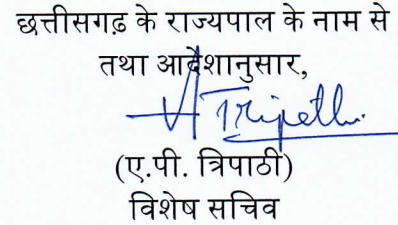 छत्तीसगढ़ के राज्यपाल के नाम से
तथा आदेशानुसार,
A Tripathi
(ए.पी. त्रिपाठी)
विशेष सचिव